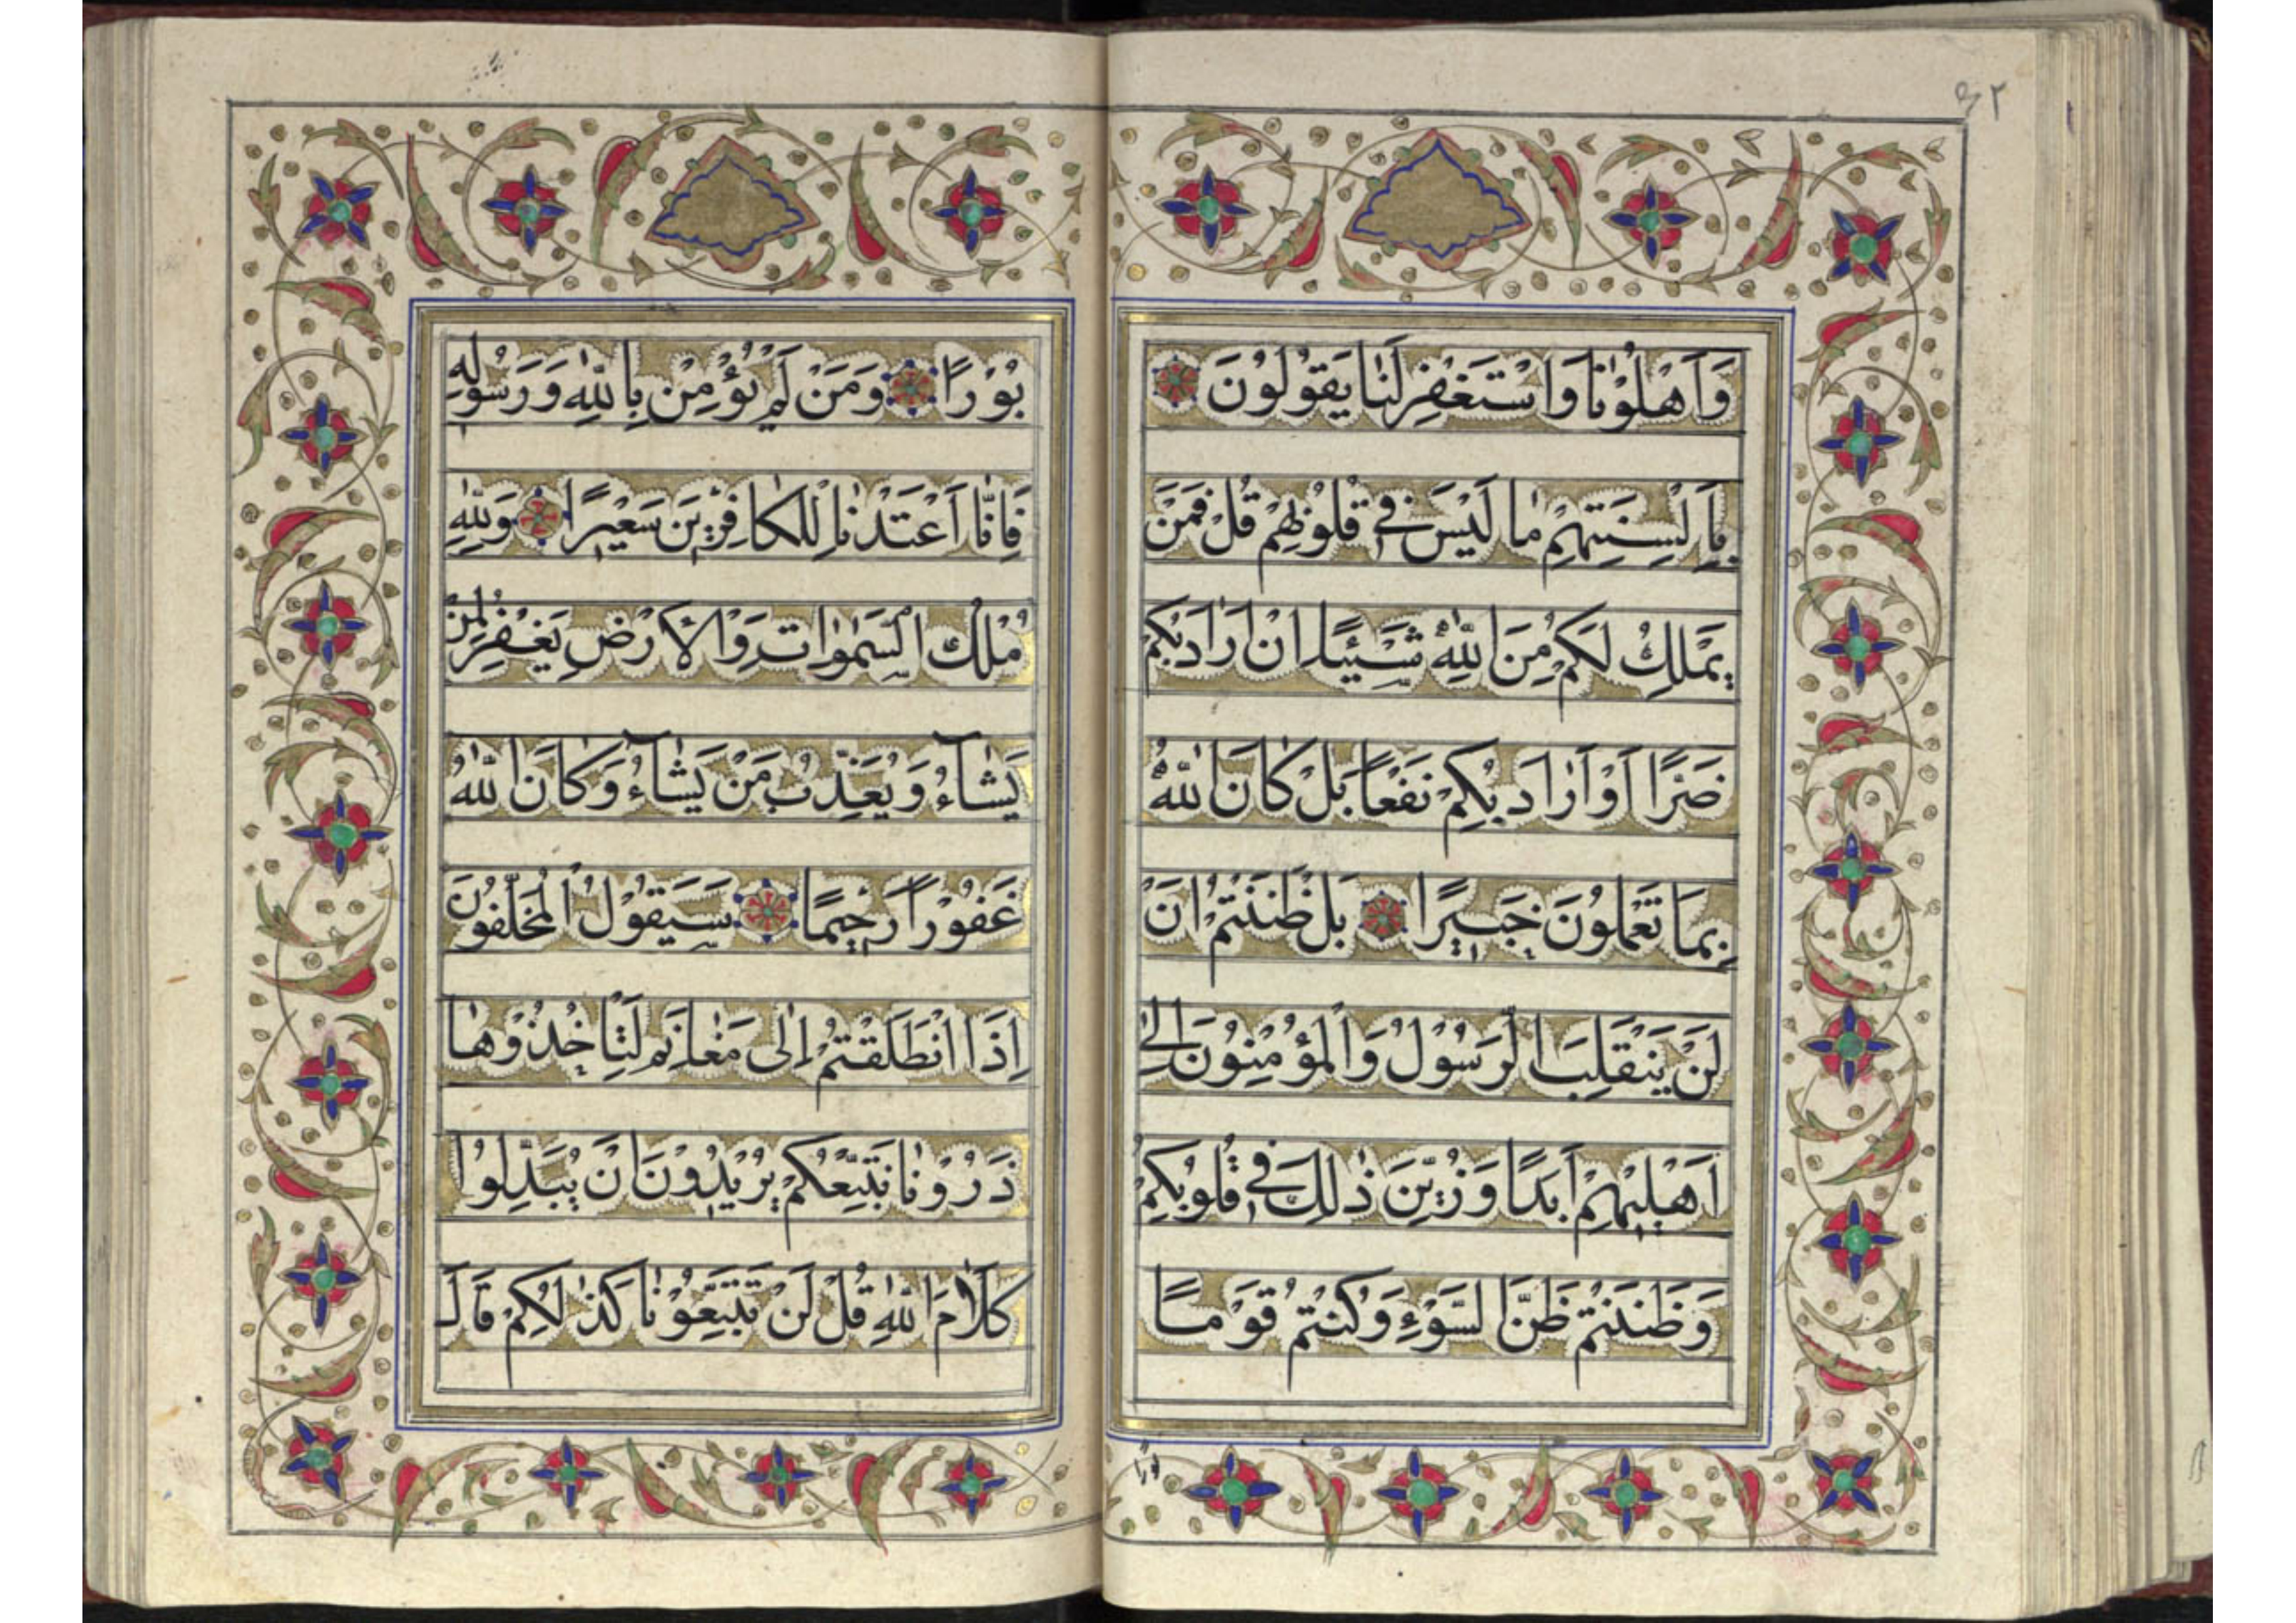 ٣٢
وَاَهْلُوْنٰا وَاسْتَغْفِرْ لَنٰا يَقُوْلُوْنَ
بِاَلْسِنَتِهِمْ مٰا لَيْسَ فِى قُلُوبِهِمْ قُلْ فَمَنْ
يَمْلِكُ لَكُمْ مِنَ اللّٰهِ شَيْئًا اِنْ اَرٰادَ بِكُمْ
ضَرًّا اَوْ اَرٰادَ بِكُمْ نَفْعًا بَلْ كٰانَ اللّٰهُ
بِمَا تَعْمَلُونَ خَبِيرًا بَلْ ظَنَنْتُمْ اَنْ
لَنْ يَنْقَلِبَ الرَّسُوْلُ وَالْمُؤْمِنُوْنَ اِلٰى
اَهْلِيْهِمْ اَبَدًا وَزُيِّنَ ذٰلِكَ فِى قُلُوبِكُمْ
وَظَنَنْتُمْ ظَنَّ السَّوْءِ وَكُنْتُمْ قَوْمًا
بورًا
بُوْرًا وَمَنْ لَمْ يُؤْمِنْ بِاللّٰهِ وَرَسُوْلِهِ
فَاِنّٰا اَعْتَدْنٰا لِلْكٰافِرِيْنَ سَعِيْرًا وَلِلّٰهِ
مُلْكُ السَّمٰوٰاتِ وَالْاَرْضِ يَغْفِرُ لِمَنْ
يَشٰآءُ وَيُعَذِّبُ مَنْ يَشٰآءُ وَكٰانَ اللّٰهُ
غَفُوْرًا رَحِيمًا سَيَقُوْلُ الْمُخَلَّفُوْنَ
اِذَا انْطَلَقْتُمْ اِلٰى مَغٰانِمَ لِتَاْخُذُوْهٰا
ذَرُوْنٰا نَتَّبِعْكُمْ يُرِيْدُوْنَ اَنْ يُبَدِّلُوا
كَلٰامَ اللّٰهِ قُلْ لَنْ تَتَّبِعُوْنٰا كَذٰلِكُمْ قَالَ